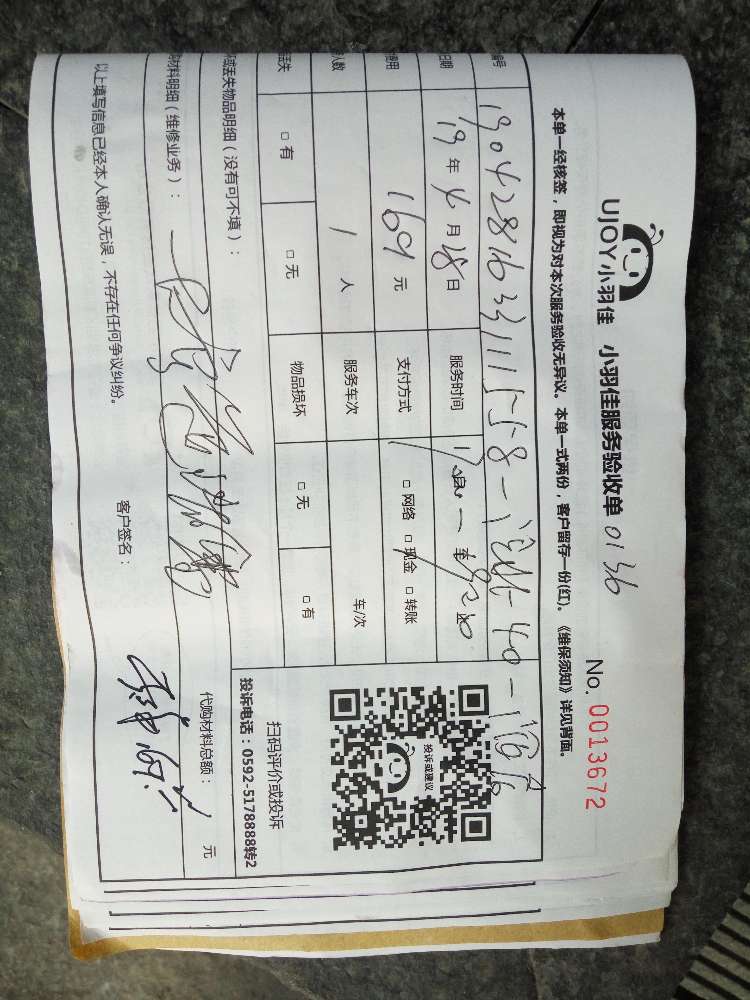 UJOY小羽佳 小羽佳服务验收单 0136
No. 0013672
本单一经核签，即视为对本次服务验收无异议。本单一式两份，客户留存一份(红)。《维保须知》详见背面。
编号
日期 19 年 4 月 28 日 服务时间
费用 169 元 支付方式 □ 网络 □ 现金 □ 转账
人数 1 人 服务车次 车/次
丢失 □ 有 □ 无 物品损坏 □ 无 □ 有
投诉或建议
扫码评价或投诉
投诉电话：0592-5178888转2
坏或丢失物品明细（没有可不填）：
材料明细（维修业务）：
代购材料总额： 元
以上填写信息已经本人确认无误，不存在任何争议纠纷。
客户签名：